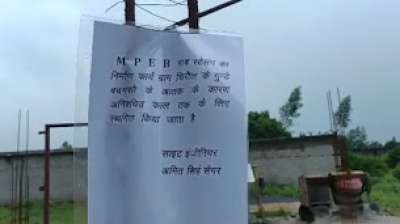 M P E B सब स्टेसन का
निर्माण कार्य ग्राम चिरौल के गुन्डे
बदमासो के आतक के कारण
अनिश्चित काल तक के लिए
स्थगित किया जाता है
साइट इंजीनियर
अमित सिहं सेंगर